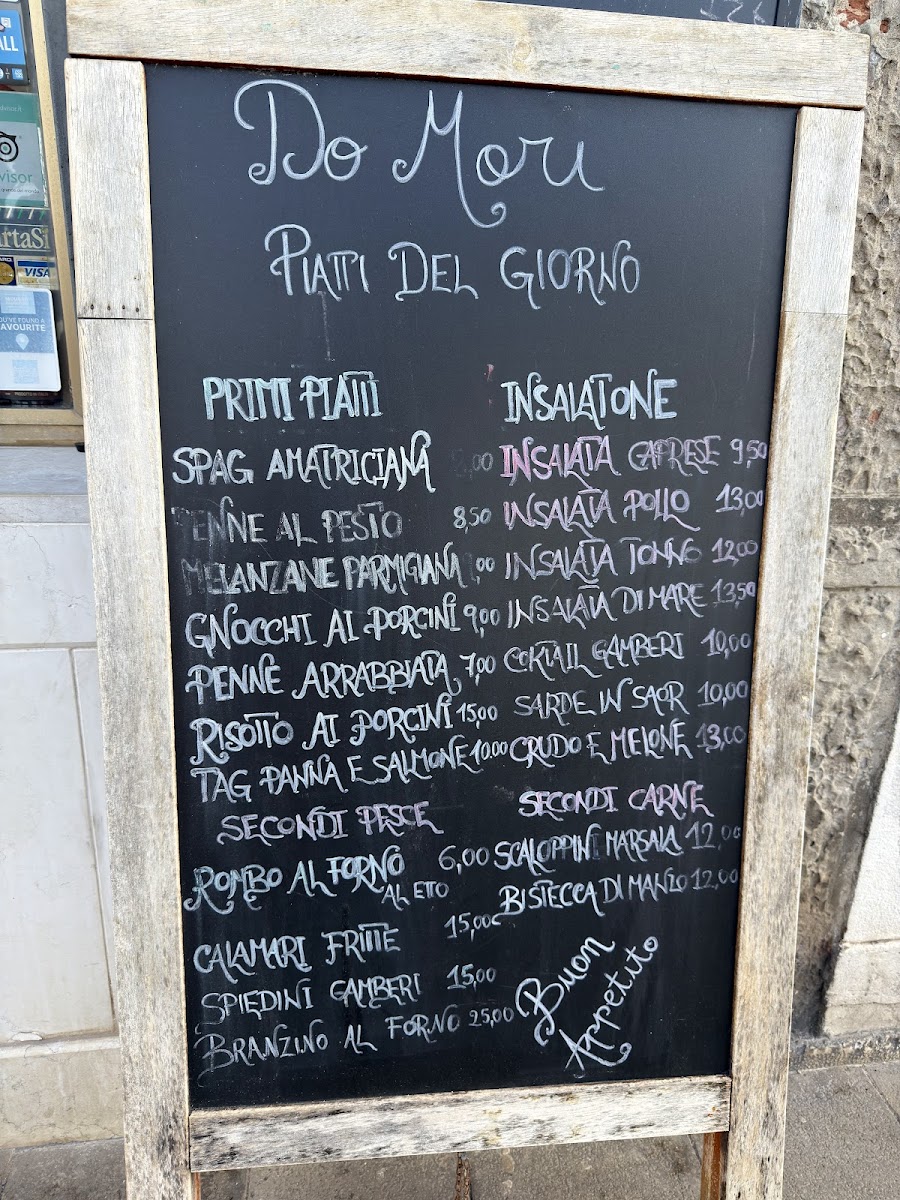 ALL
visor
rtaSi
VISA
YOU'VE FOUND A
FAVOURITE
Do Mori
PIATTI DEL GIORNO
PRIMI PIATTI
SPAG AMATRICIANA
PENNE AL PESTO 8,50
MELANZANE PARMIGIANA
GNOCCHI AI PORCINI 9,00
PENNE ARRABBIATA 7,00
RISOTTO AI PORCINI 15,00
TAG PANNA E SALMONE 10.00
SECONDI PESCE
ROMBO AL FORNO 6,00
AL ETTO
CALAMARI FRITTE 15,00
SPIEDINI GAMBERI 15,00
BRANZINO AL FORNO 25,00
INSALATONE
INSALATA CAPRESE 9,50
INSALATA POLLO 13,00
INSALATA TONNO 12,00
INSALATA DI MARE 13,50
COKTAIL GAMBERI 10,00
SARDE IN SAOR 10,00
CRUDO E MELONE 13,00
SECONDI CARNE
SCALOPPINI MARSALA 12,00
BISTECCA DI MANZO 12,00
Buon
Appetito